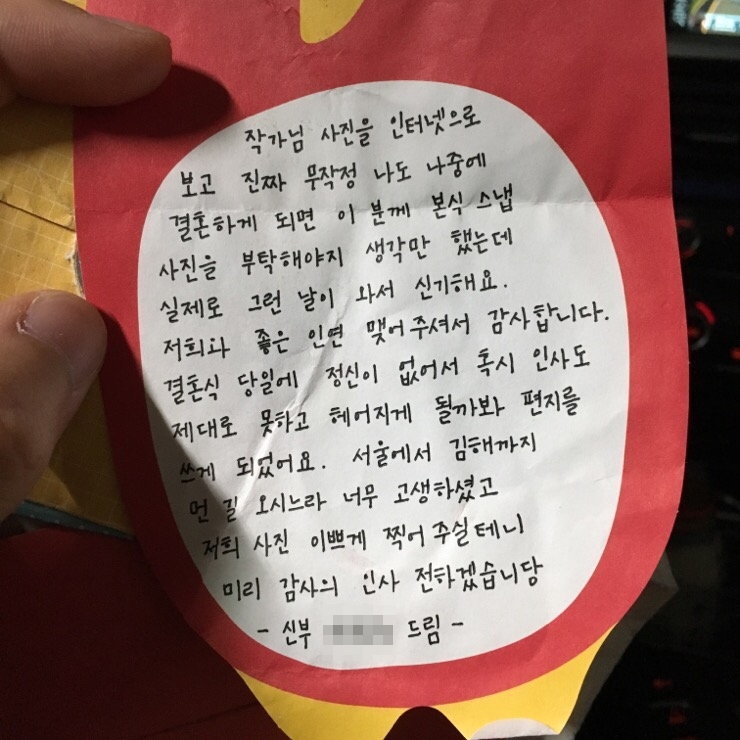 작가님 사진을 인터넷으로
보고 진짜 무작정 나도 나중에
결혼하게 되면 이 분께 본식 스냅
사진을 부탁해야지 생각만 했는데
실제로 그런 날이 와서 신기해요.
저희와 좋은 인연 맺어주셔서 감사합니다.
결혼식 당일에 정신이 없어서 혹시 인사도
제대로 못하고 헤어지게 될까봐 편지를
쓰게 되었어요. 서울에서 김해까지
먼 길 오시느라 너무 고생하셨고
저희 사진 이쁘게 찍어주실테니
미리 감사의 인사 전하겠습니당
- 신부 드림 -